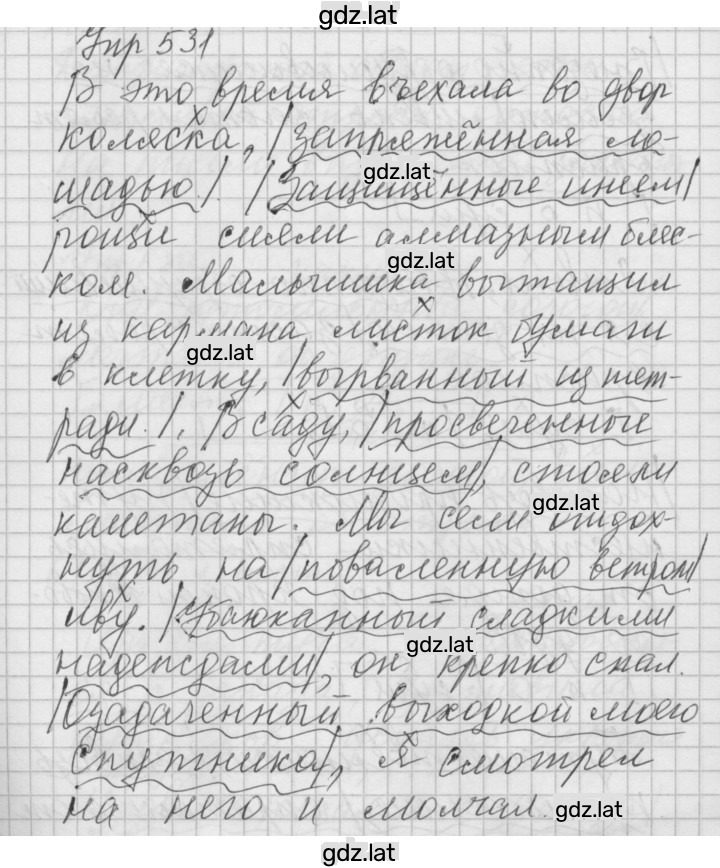 gdz.lat
Упр 531
В это время въехала во двор
коляска, |запряжённая ло-
gdz.lat
шадью.|. |Защищённые инеем|
рощи сияли алмазным блес-
gdz.lat
ком. Мальчишка вытащил
из кармана листок бумаги
gdz.lat
в клетку, |вырванный из тет-
ради.|. В саду, |просвеченные
насквозь солнцем|, стояли
gdz.lat
каштаны. Мы сели отдох-
нуть на |поваленную ветром|
иву. |Убаюканный сладкими
gdz.lat
надеждами|, он крепко спал.
|Озадаченный выходкой моего
спутника|, я смотрел
на него и молчал.
gdz.lat
gdz.lat